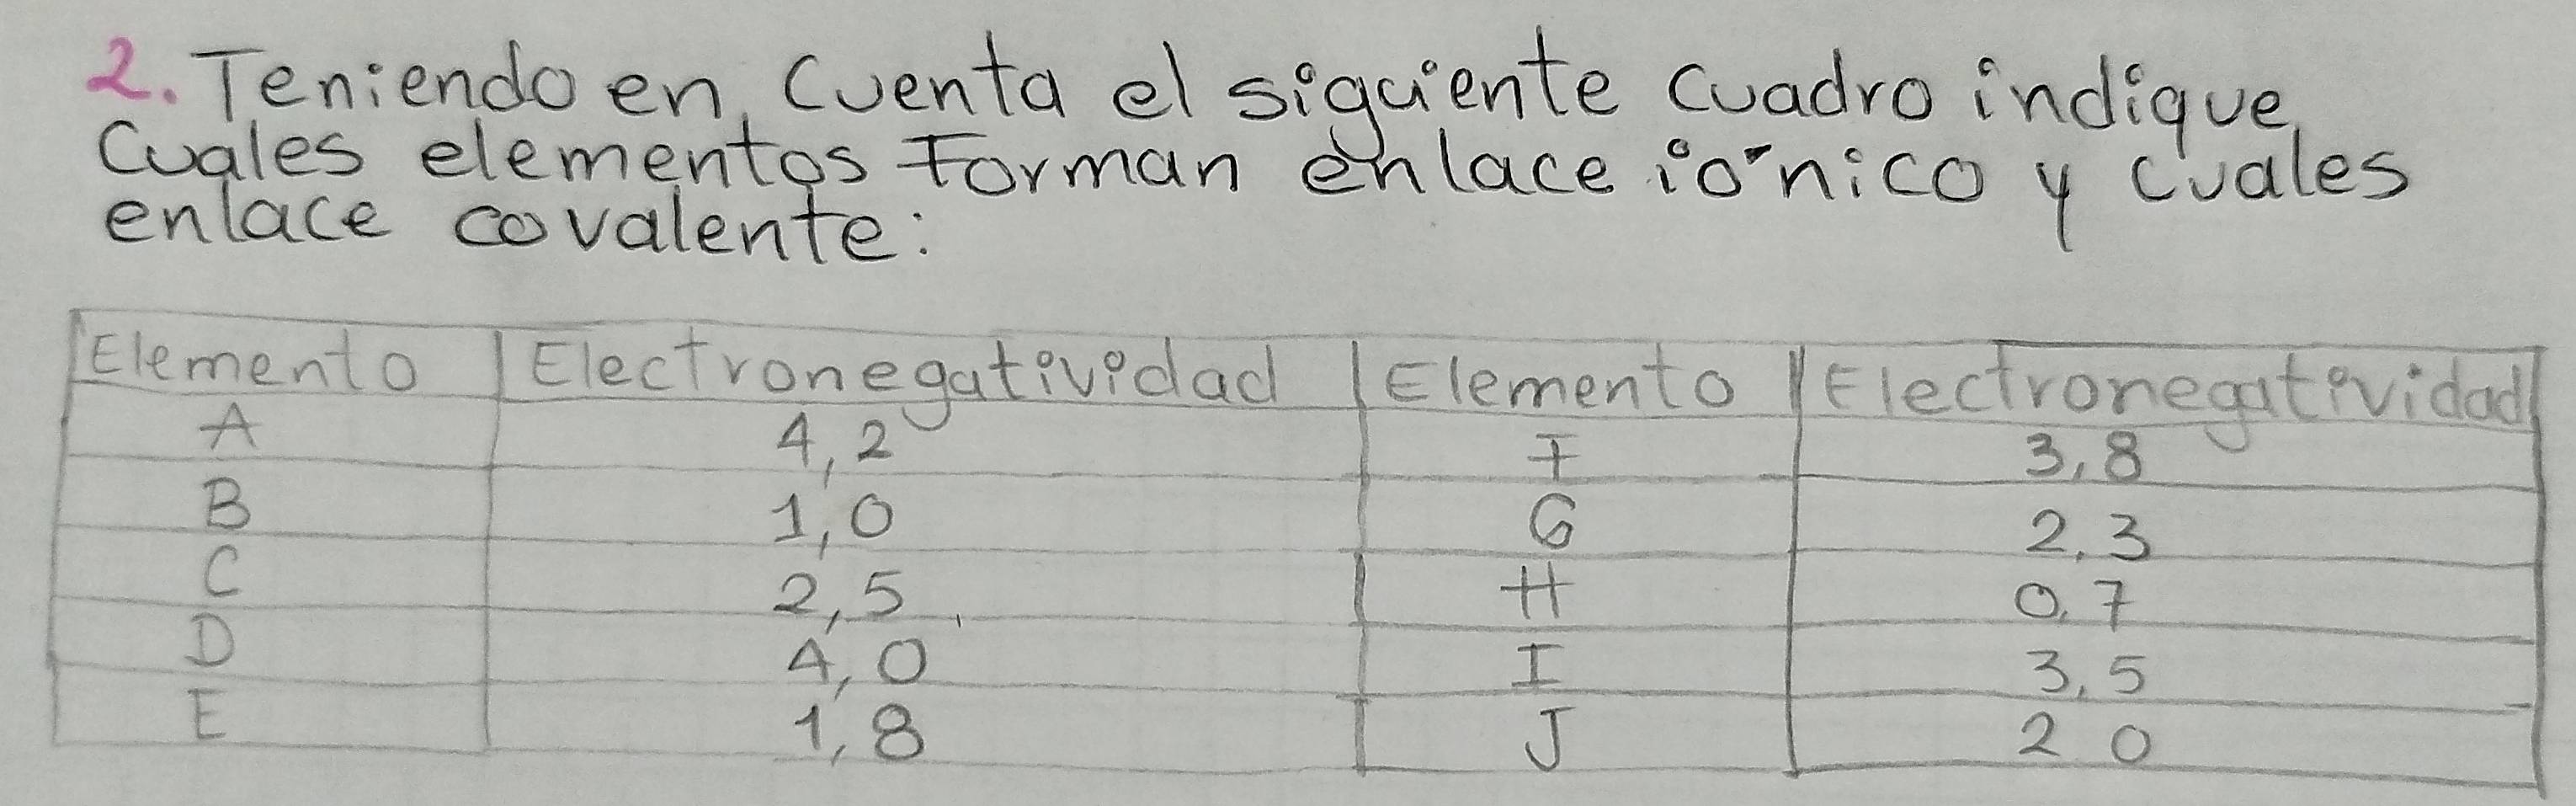 2. Teniendo en cuenta el siguiente cuadro indique
cuales elementos forman enlace iónico y cuales
enlace covalente:
Elemento Electronegatividad Elemento Electronegatividad
A 4,2 F 3,8
B 1,0 G 2,3
C 2,5 H 0,7
D 4,0 I 3,5
E 1,8 J 2 0